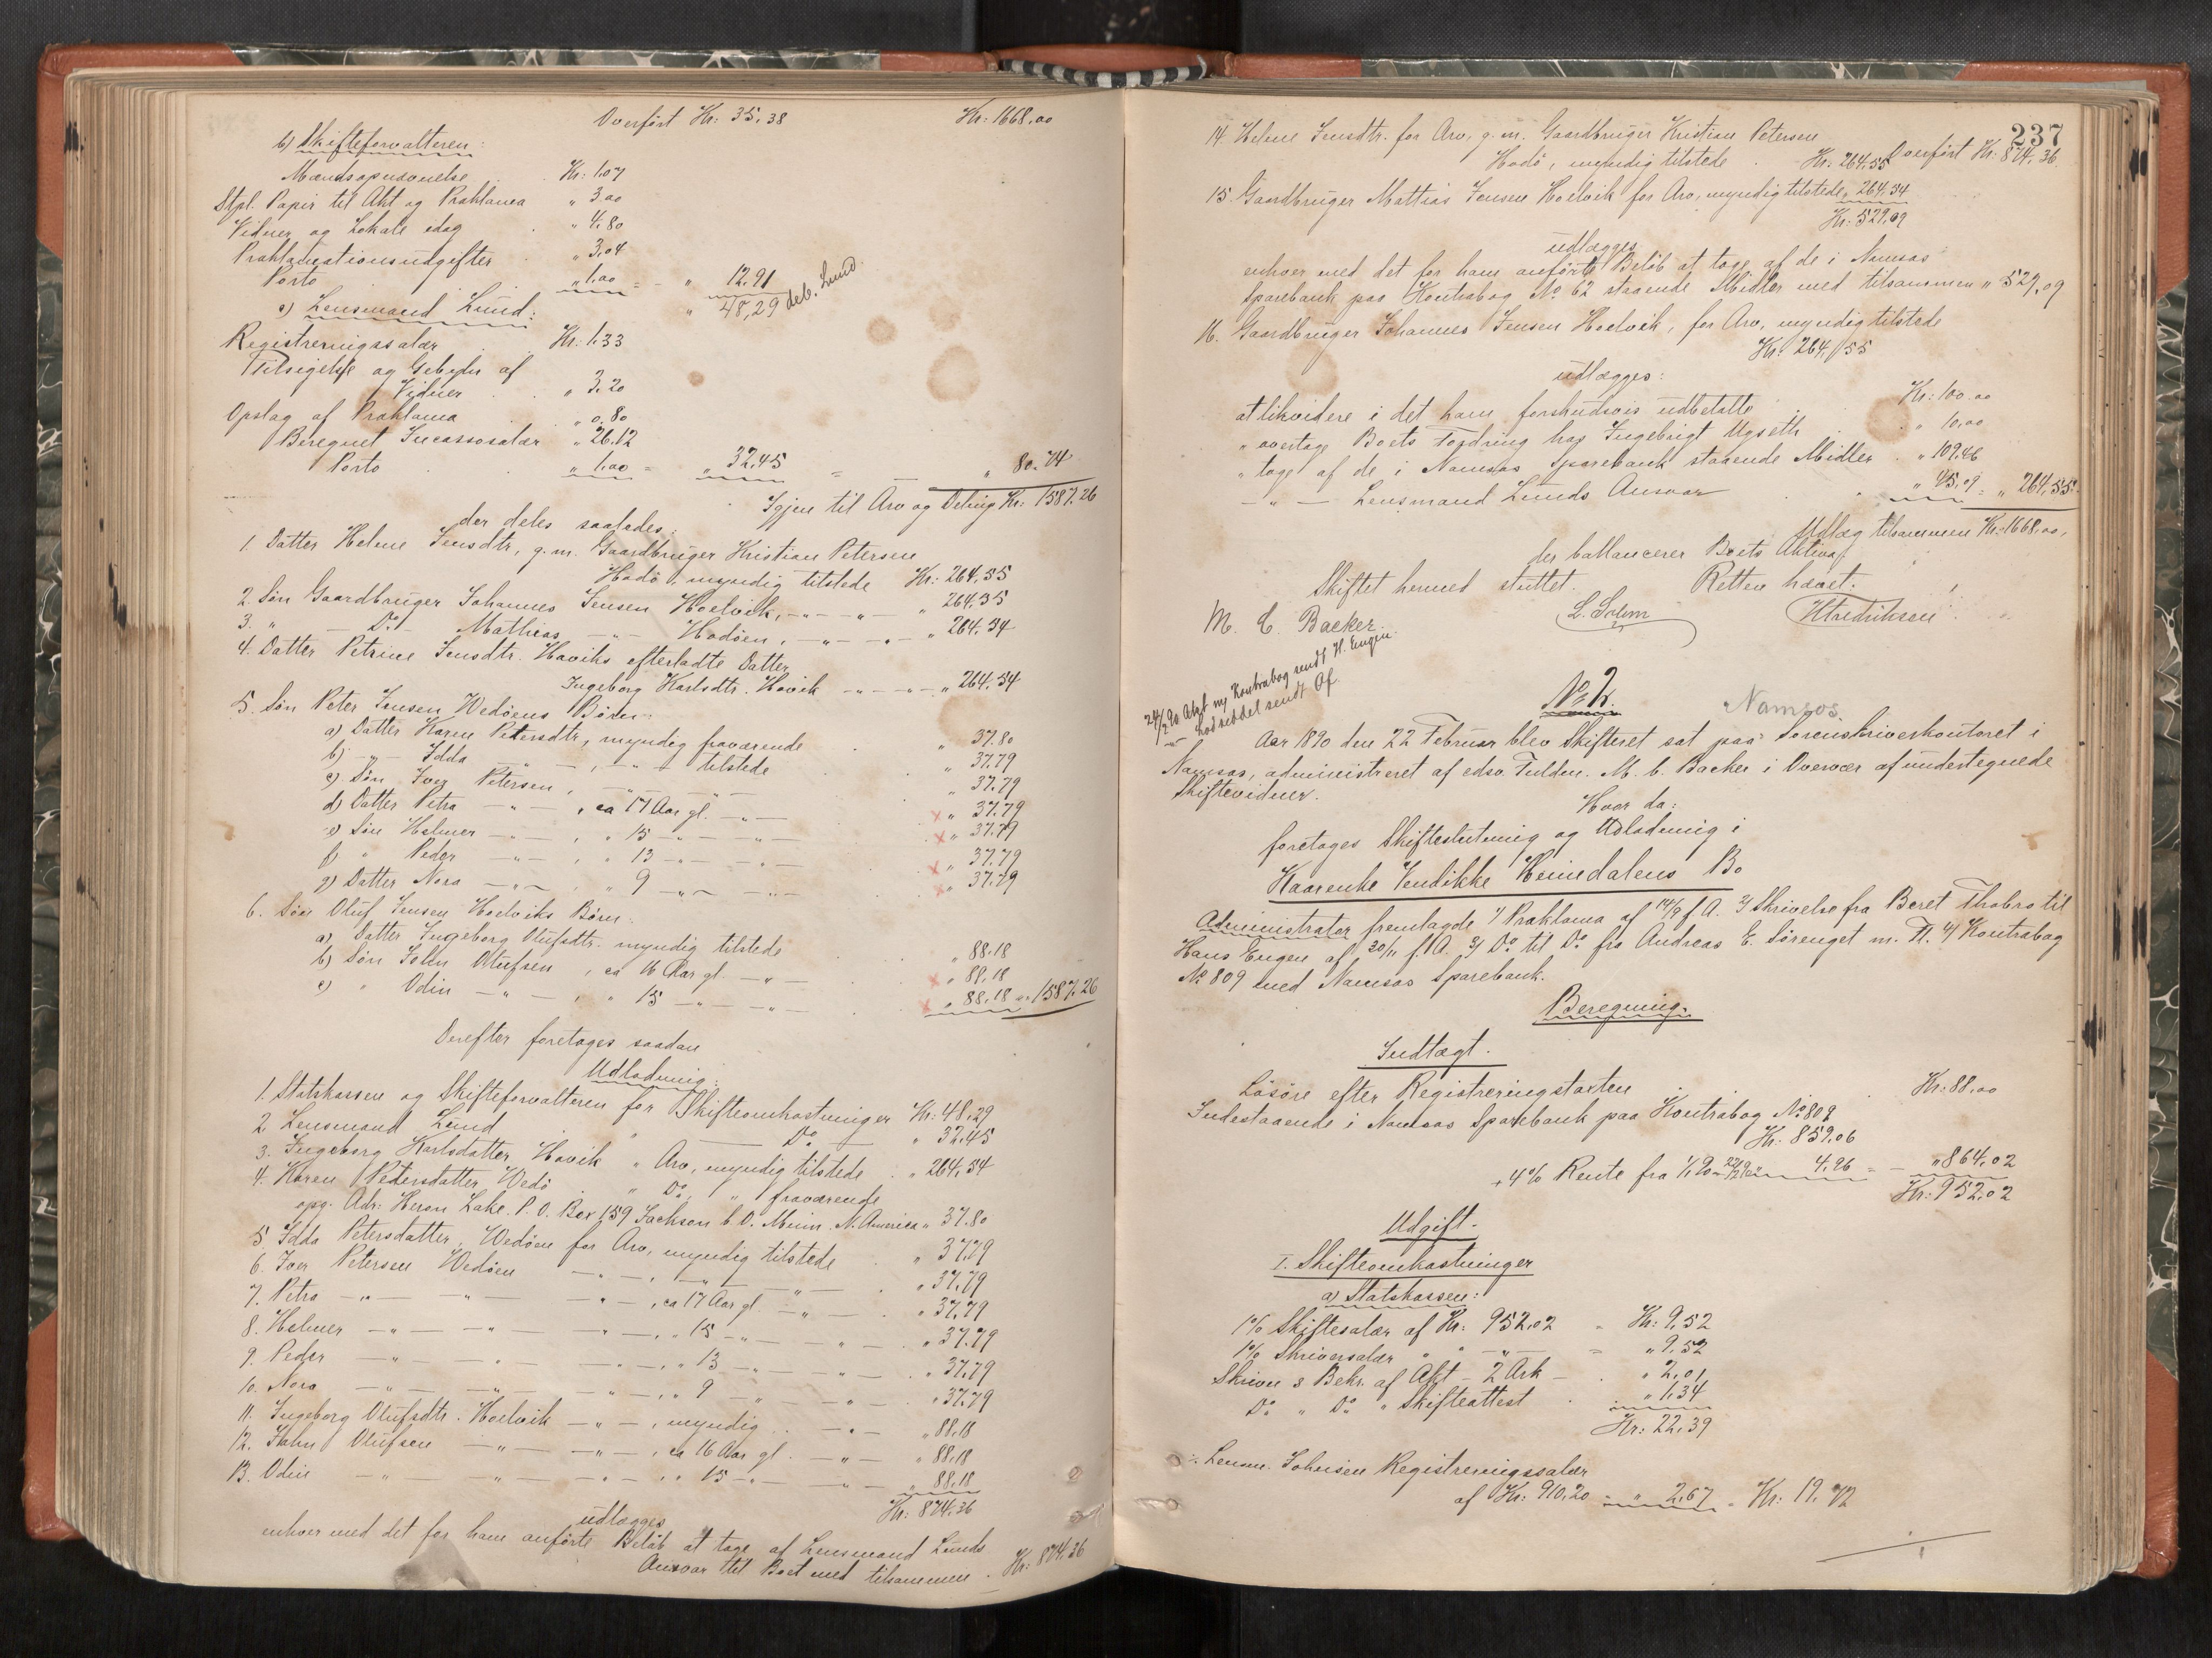 Overført Kr. 35.38 Kr: 1668.00
b) Skifteforvalteren:
Mandsopnævnelse Kr: 1.07
Stpl. Papir til Akt og Proklama " 3.00
Vidner og Lokale idag " 4.80
Proklamationsudgifter " 3.04
Porto " 1.00 = " 12.91
" 48,29 deb. Lund.
c) Lensmand Lund:
Registreringssalær Kr. 1.33
Tilsigelse og Gebyhr af
Vidner " 3.20
Opslag af Proklama " 0.80
Beregnet Incassosalær " 26.12
Porto " 1.00 = " 32.45 = " 80.74
Igjen til Arv og Deling Kr: 1587.26
der deles saaledes:
1. Datter Helene Jensdtr, g.m. Gaardbruger Kristian Petersen
Hodø, myndig tilstede Kr: 264.55
2. Søn Gaardbruger Johannes Jensen Hoelvik, - " - " - " 264.55
3. " - Do - Mathias - " - Hodøen, - " - " - " 264.54
4. Datter Petrine Jensdtr. Haviks efterladte Datter
Ingeborg Karlsdtr. Havik - " - " - " 264.54
5. Søn Peter Jensen Wedøens Børn:
a) Datter Karen Petersdtr, myndig fraværende " 37.80
b) - " - Idda - " - , - " - tilstede " 37.79
c) Søn Iver Petersen, - " - " - " 37.79
d) Datter Petra - " - , ca 17 Aar gl. - " - x " 37.79
e) Søn Helmer - " - , " 15 - " - " - x " 37.79
f) " Peder - " - , " 13 - " - " - x " 37.79
g) Datter Nora - " - , " 9 - " - " - x " 37.79
6. Søn Oluf Jensen Hoelviks Børn:
a) Datter Ingeborg Olufsdtr. myndig tilstede " 88.18
b) Søn John Olufsen, ca 16 Aar gl. - " - x " 88.18
c) " Odin - " - , " 15 - " - " - x " 88.18 = " 1587.26
Derefter foretages saadan
Udlodning:
1. Statskassen og Skifteforvalteren for Skifteomkostninger Kr: 48.29
2. Lensmand Lund " - Do - " 32.45
3. Ingeborg Karlsdatter Havik " Arv, myndig tilstede " 264.54
4. Karen Pedersdatter Wedø " Do " fraværende
opg. Adr: Heron Lake. P.O. Box 159 Jackson C.O. Minn. N. America " 37.80
5. Idda Petersdatter Wedøen for Arv, myndig tilstede " 37.79
6. Iver Petersen Wedøen - " - , - " - " - " 37.79
7. Petra - " - " - " - , ca 17 Aar gl. - " - " 37.79
8. Helmer - " - " - " - , " 15 - " - " - " 37.79
9. Peder - " - " - " - , " 13 - " - " - " 37.79
10. Nora - " - " - " - , " 9 - " - " - " 37.79
11. Ingeborg Olufsdtr. Hoelvik - " - , myndig - " - " 88.18
12. John Olufsen - " - " - , ca 16 Aar gl. - " - " 88.18
13. Odin - " - " - " - , " 15 - " - " - " 88.18
Kr: 874.36
udlægges
enhver med det for ham anførte Beløb at tage af Lensmand Lunds
Ansvar til Boet med tilsammen . Kr: 874.36
237
Overført Kr: 874.36
14. Helene Jensdtr. for Arv, g.m. Gaardbruger Kristian Petersen
Hodø, myndig tilstede . Kr: 264.55
15. Gaardbruger Mattias Jensen Hoelvik for Arv, myndig tilstede " 264.54
Kr: 529.09
udlægges
enhver med det for ham anførte Beløb at tage af de i Namsos
Sparebank paa Kontrabog No 62 staaende Midler med tilsammen " 529.09
16. Gaardbruger Johannes Jensen Hoelvik, for Arv, myndig tilstede
Kr: 264.55
udlægges:
at likvidere i det ham forskudsvis udbetalte Kr: 100.00
" overtage Boets Fordring hos Ingebrigt Ugseth " 10.00
" tage af de i Namsos Sparebank staaende Midler " 109.46
- " - Lensmand Lunds Ansvar " 45.09 = " 264.55
Udlæg tilsammen Kr: 1668.00,
der ballancerer Boets Aktiva.
Skiftet hermed sluttet. Retten hævet.
M. C. Backer. L. Solem
24/2 90 Akt m/ Kontrabog sendt H. Engen
- " - Lodseddel sendt Of.
No 2. Namsos.
Aar 1890 den 22 Februar blev Skifteret sat paa Sorenskriverkontoret i
Namsos, administreret af edsv. Fuldm. M. C. Backer i Overvær af undertegnede
Skiftevidner.
Hvor da:
foretages Skifteslutning og Udlodning i
Kaarenke Vendikke Heimedalens Bo
Administrator fremlagde 1/ Proklama af 14/9 f.A. 2/ Skrivelse fra Beret Thobro til
Hans Engen af 20/11 f.A. 3/ Do til Do fra Andreas E. Sørenget m. Fl. 4/ Kontrabog
No 809 med Namsos Sparebank.
Beregning.
Indtægt.
Løsøre efter Registreringstaxten Kr: 88.00
Indestaaende i Namsos Sparebank paa Kontrabog No 809
Kr: 859.06
+ 4% Rente fra 1/1 90 - 22/2 90 " 4.96 = " 864.02
Kr: 952.02
Udgift.
I. Skifteomkostninger
a) Statskassen:
1% Skiftesalær af Kr: 952.02 = Kr: 9.52
1% Skriversalær " " - " - = " 9.52
Skriver & Bekr. af Akt - 2 Ark - " 2.01
Do " Do " Skifteattest " 1.34
Kr: 22.39
÷ Lensm. Johnsen Registreringssalær
af Kr: 910.20 = " 2.67 = Kr: 19.72